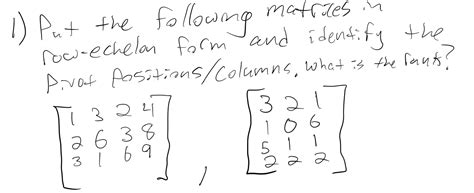 1) Put the following matrices in
row-echelon form and identify the
pivot positions/columns. What is the rank?
[1 3 2 4] [3 2 1]
[2 6 3 8] [1 0 6]
[3 1 6 9] , [5 1 1]
[2 2 2]